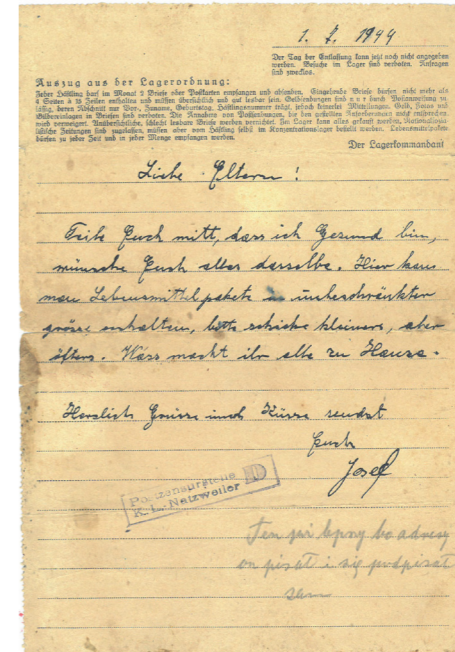 1. 2. 1944
Der Tag der Entlassung kann jetzt noch nicht angegeben
werden. Besuche im Lager sind verboten. Anfragen
sind zwecklos.
Auszug aus der Lagerordnung:
Jeder Häftling darf im Monat 2 Briefe oder Postkarten empfangen und absenden. Eingehende Briefe dürfen nicht mehr als
4 Seiten à 15 Zeilen enthalten und müssen übersichtlich und gut lesbar sein. Geldsendungen sind nur durch Postanweisung zu-
lässig, deren Abschnitt nur Vor-, Zuname, Geburtstag, Häftlingsnummer trägt, jedoch keinerlei Mitteilungen. Geld, Fotos und
Bildereinlagen in Briefen sind verboten. Die Annahme von Postsendungen, die den gestellten Anforderungen nicht entsprechen,
wird verweigert. Unübersichtliche, schlecht lesbare Briefe werden vernichtet. Im Lager kann alles gekauft werden. Nationalsozia-
listische Zeitungen sind zugelassen, müssen aber vom Häftling selbst im Konzentrationslager bestellt werden. Lebensmittelpakete
dürfen zu jeder Zeit und in jeder Menge empfangen werden.
Der Lagerkommandant
Liebe Eltern!
Teile Euch mitt, dass ich Gezund bin,
wünsche Euch alles darselbe. Hier kann
man Lebensmittelpakete in unbeschränkter
grösse enhalten, bitte schicke kleinere, aber
öfters. Wass macht ihr alle zu Hause.
Herzlich Grüsse und Küsse sendet
Euch
Josef
Postzensurstelle
K. L. Natzweiler
Ten
on pisał i się podpisał
sam